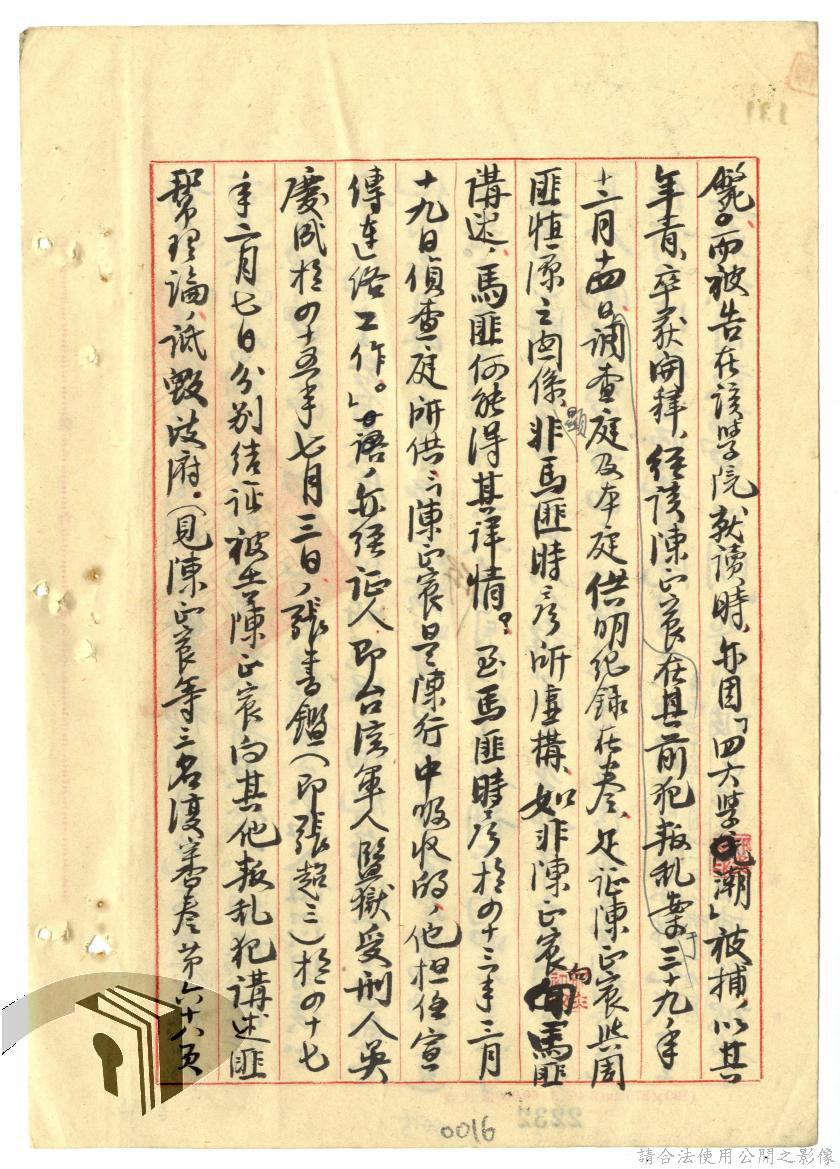 髡。而被告在該學院就讀時、亦因「四六學潮」被捕、以其
年青、卒获開釋、經該陳正宸在其前犯叛乱案于三十九年
十二月十四日調查庭及本庭供明纪録在卷、足証陳正宸與周
匪慎源之関係、顯非馬匪時彦所虚構、如非陳正宸向馬匪
講述、馬匪何能得其详情。至馬匪時彦於四十三年三月
十九日偵查庭所供「陳正宸是陳行中吸收的、他担任宣
傳連絡工作。」等語、亦經証人即台湾軍人監獄受刑人吴
慶成於四十五年七月三日、張書鑑（即張超三）於四十七
年二月七日分别结证被告陳正宸向其他叛乱犯講述匪
幫理論、诋毁政府。（見陳正宸等三名復審卷第六十八頁
0016
請合法使用公開之影像